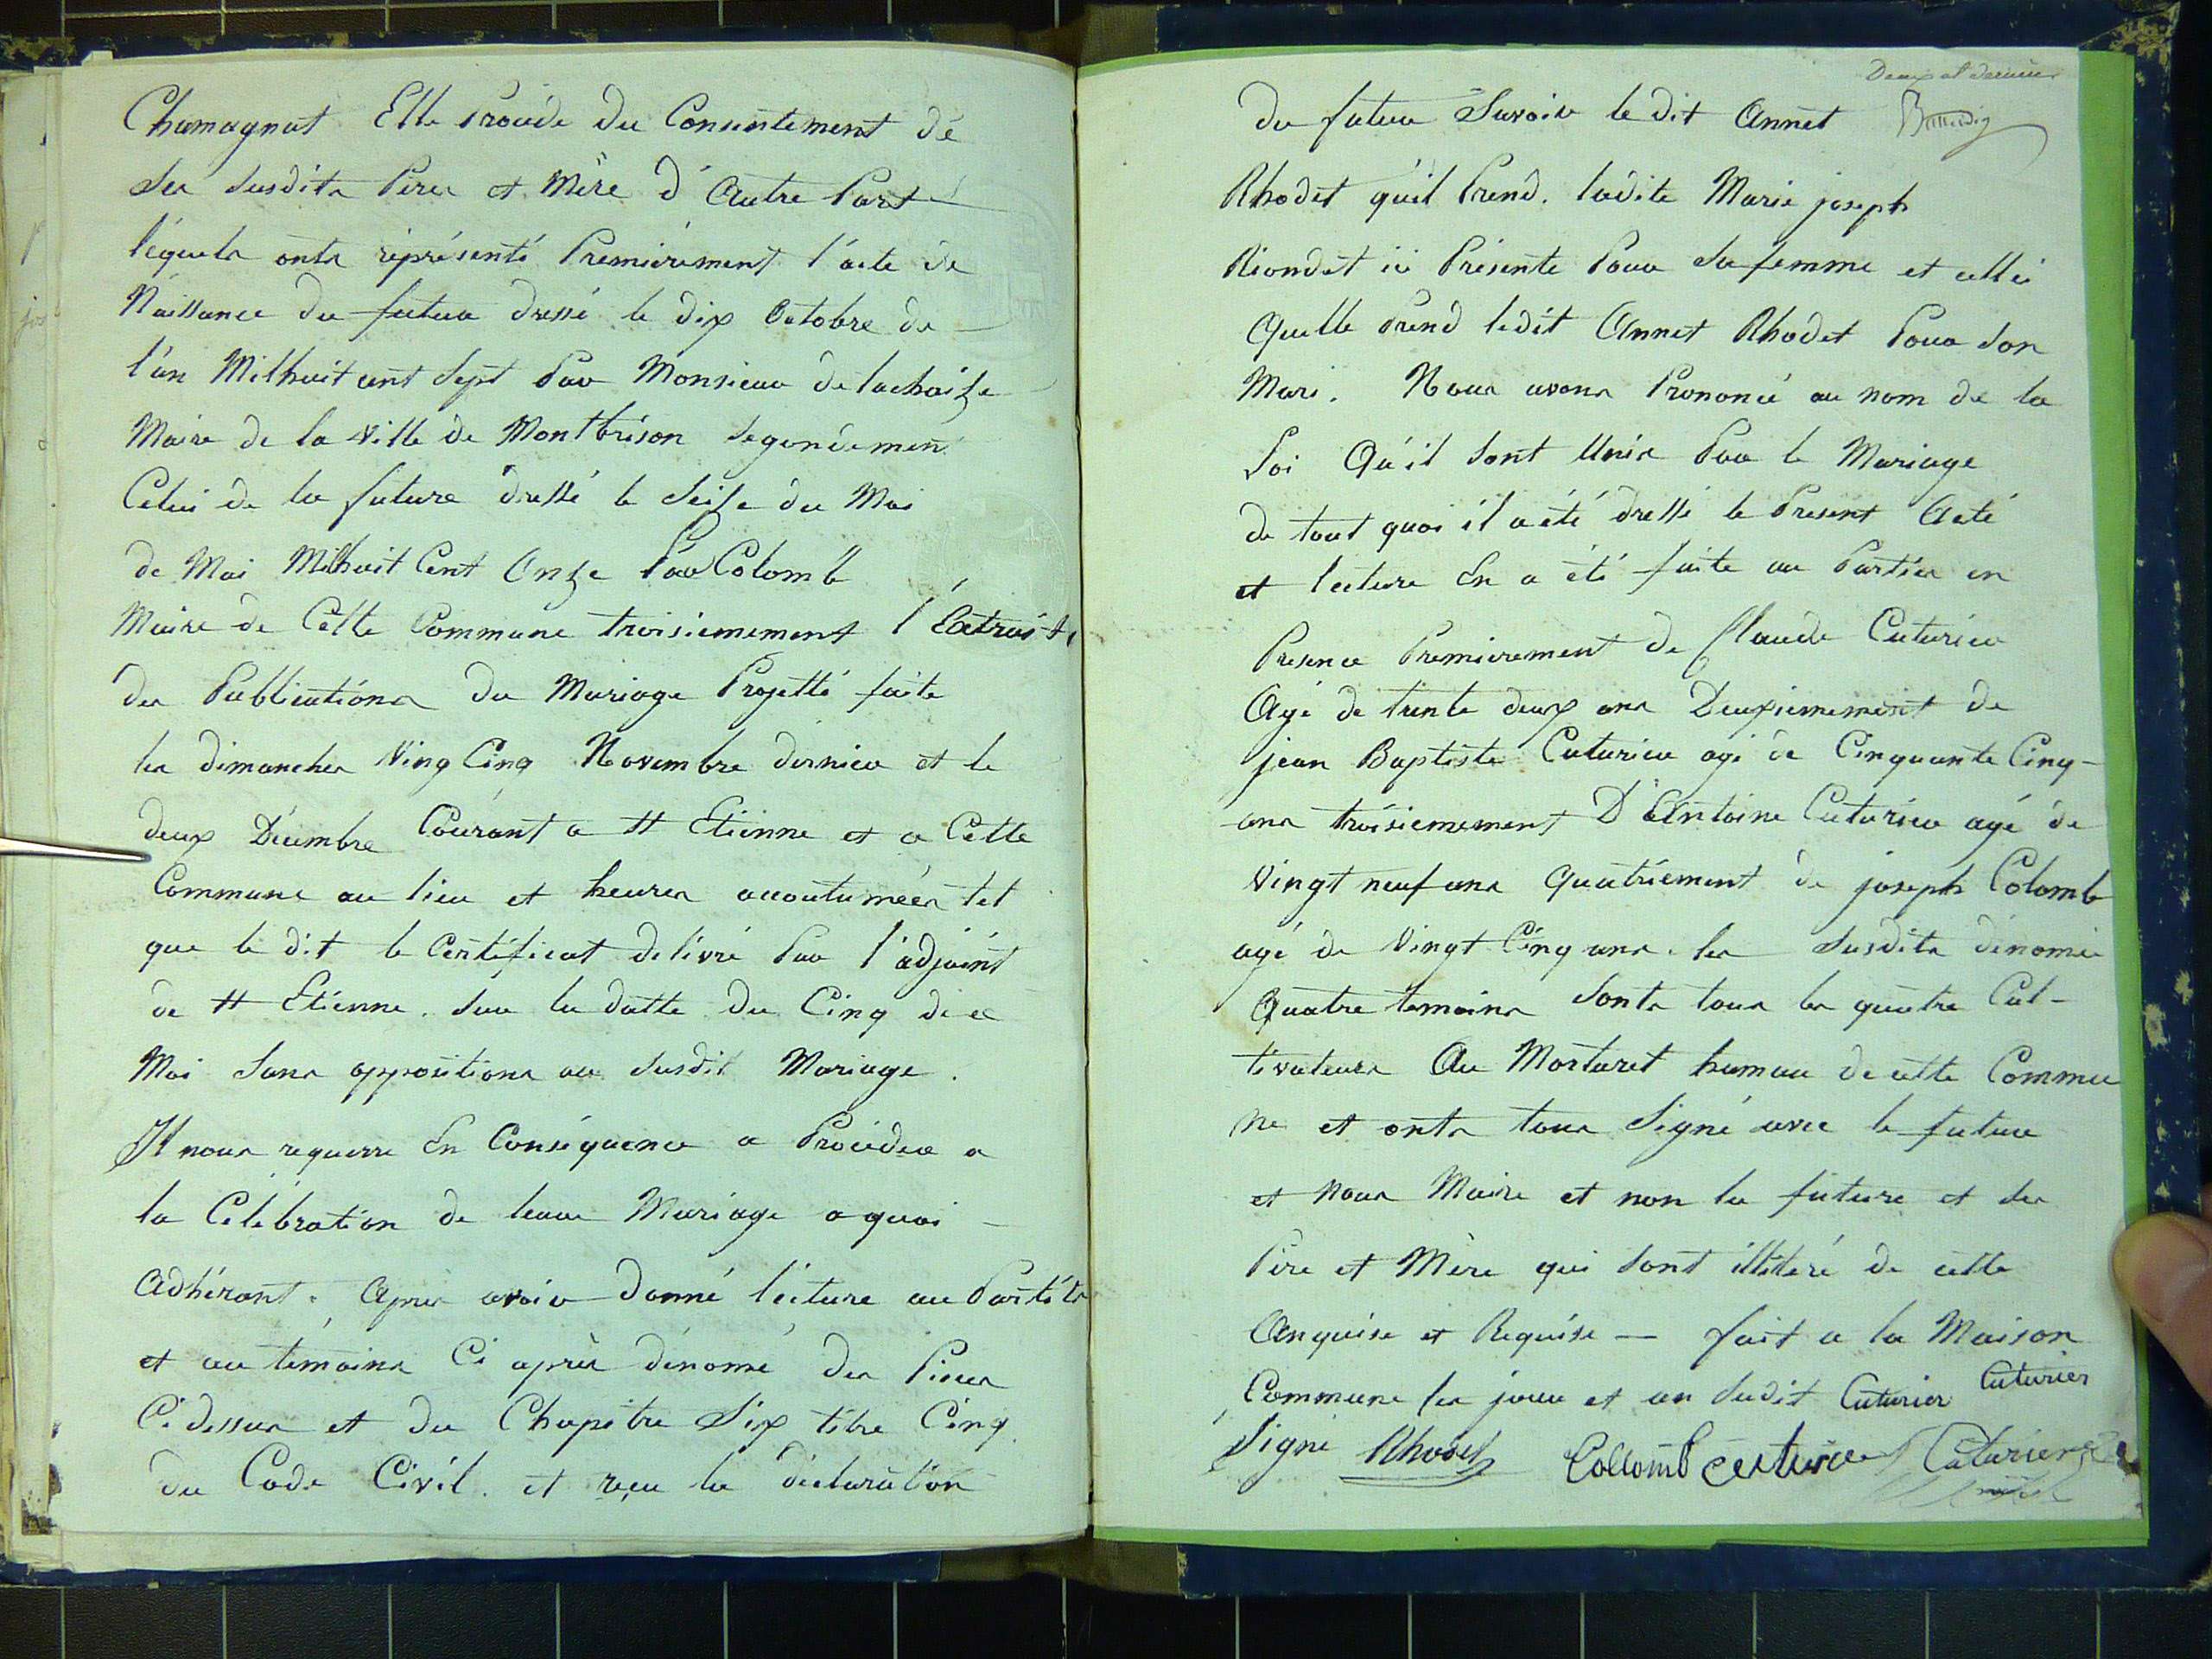 Chamagnat Elle Procède du Consentement dé
Ses Susdits Pères et Mère d'Autre Part
léquels onts réprésenté Premièrement l'acte de
Naissance du futur dressé le dix Octobre de
l'an Milhuit cent Sept Par Monsieur de lachaize
Maire de la Ville de Montbrison Segondement
Celui de la future dressé le Seise du Moi
de Mai Milhuit Cent Onze Par Colomb
Maire de Cette Commune troisiemement l'Extrait
des Publications du Mariage Projetté faite
les dimanches Ving Cinq Novembre dernier et le
deux Décembre Courant a St Etienne et a Cette
Commune au lieu et heures accoutumées tel
que le dit le Certificat délivré Par l'adjoint
de St Etienne. Sur la datte du Cinq de ce
Moi Sans oppositions au Susdit Mariage.
Il nous requerre En Conséquence a Procéder a
la Célébration de leur Mariage a quoi
Adhérant. Après avoir donné lécture au Partiés
et au témoins Ci après dénomé des Pieces
Ci dessus et du Chapitre Six titre Cinq
du Code Civil. et reçu la déclaration
Deux et dernier
du futur Savoir le dit Annet
Rhodet qu'il Prend. ladite Marie joseph
Riondet ici Présente Pour Sa femme et celle ci
Quelle Prend ledit Annet Rhodet Pour Son
Mari. Nous avons Prononcé au nom de la
Loi Qu'il Sont Unis Par le Mariage
de tout quoi il a été dressé le Present Acté
et lecture En a été faite au Parties en
Presence Premierement de Claude Cuturier
Agé de trente deux ans Deuxiemement de
jean Baptiste Cuturier agé de Cinquante Cinq
ans troisiemement D'Antoine Cuturier agé de
Vingt neuf ans Quatriement de joseph Colomb
agé de Vingt Cinq ans. les Susdits dénomée
Quatre temoins Sonts tous les quatre Cul-
tivateurs Au Mortaret hamau de cette Commu
ne et onts tous Signé avec le futur
et Nous Maire et non la future et Ses
Père et Mère qui Sont illiteré de cette
Anquise et Requise — fait a la Maison
Commune les jour et an Sudit Cuturier Cuturier
Signé Rhodet Collomb Cuturier Cuturier